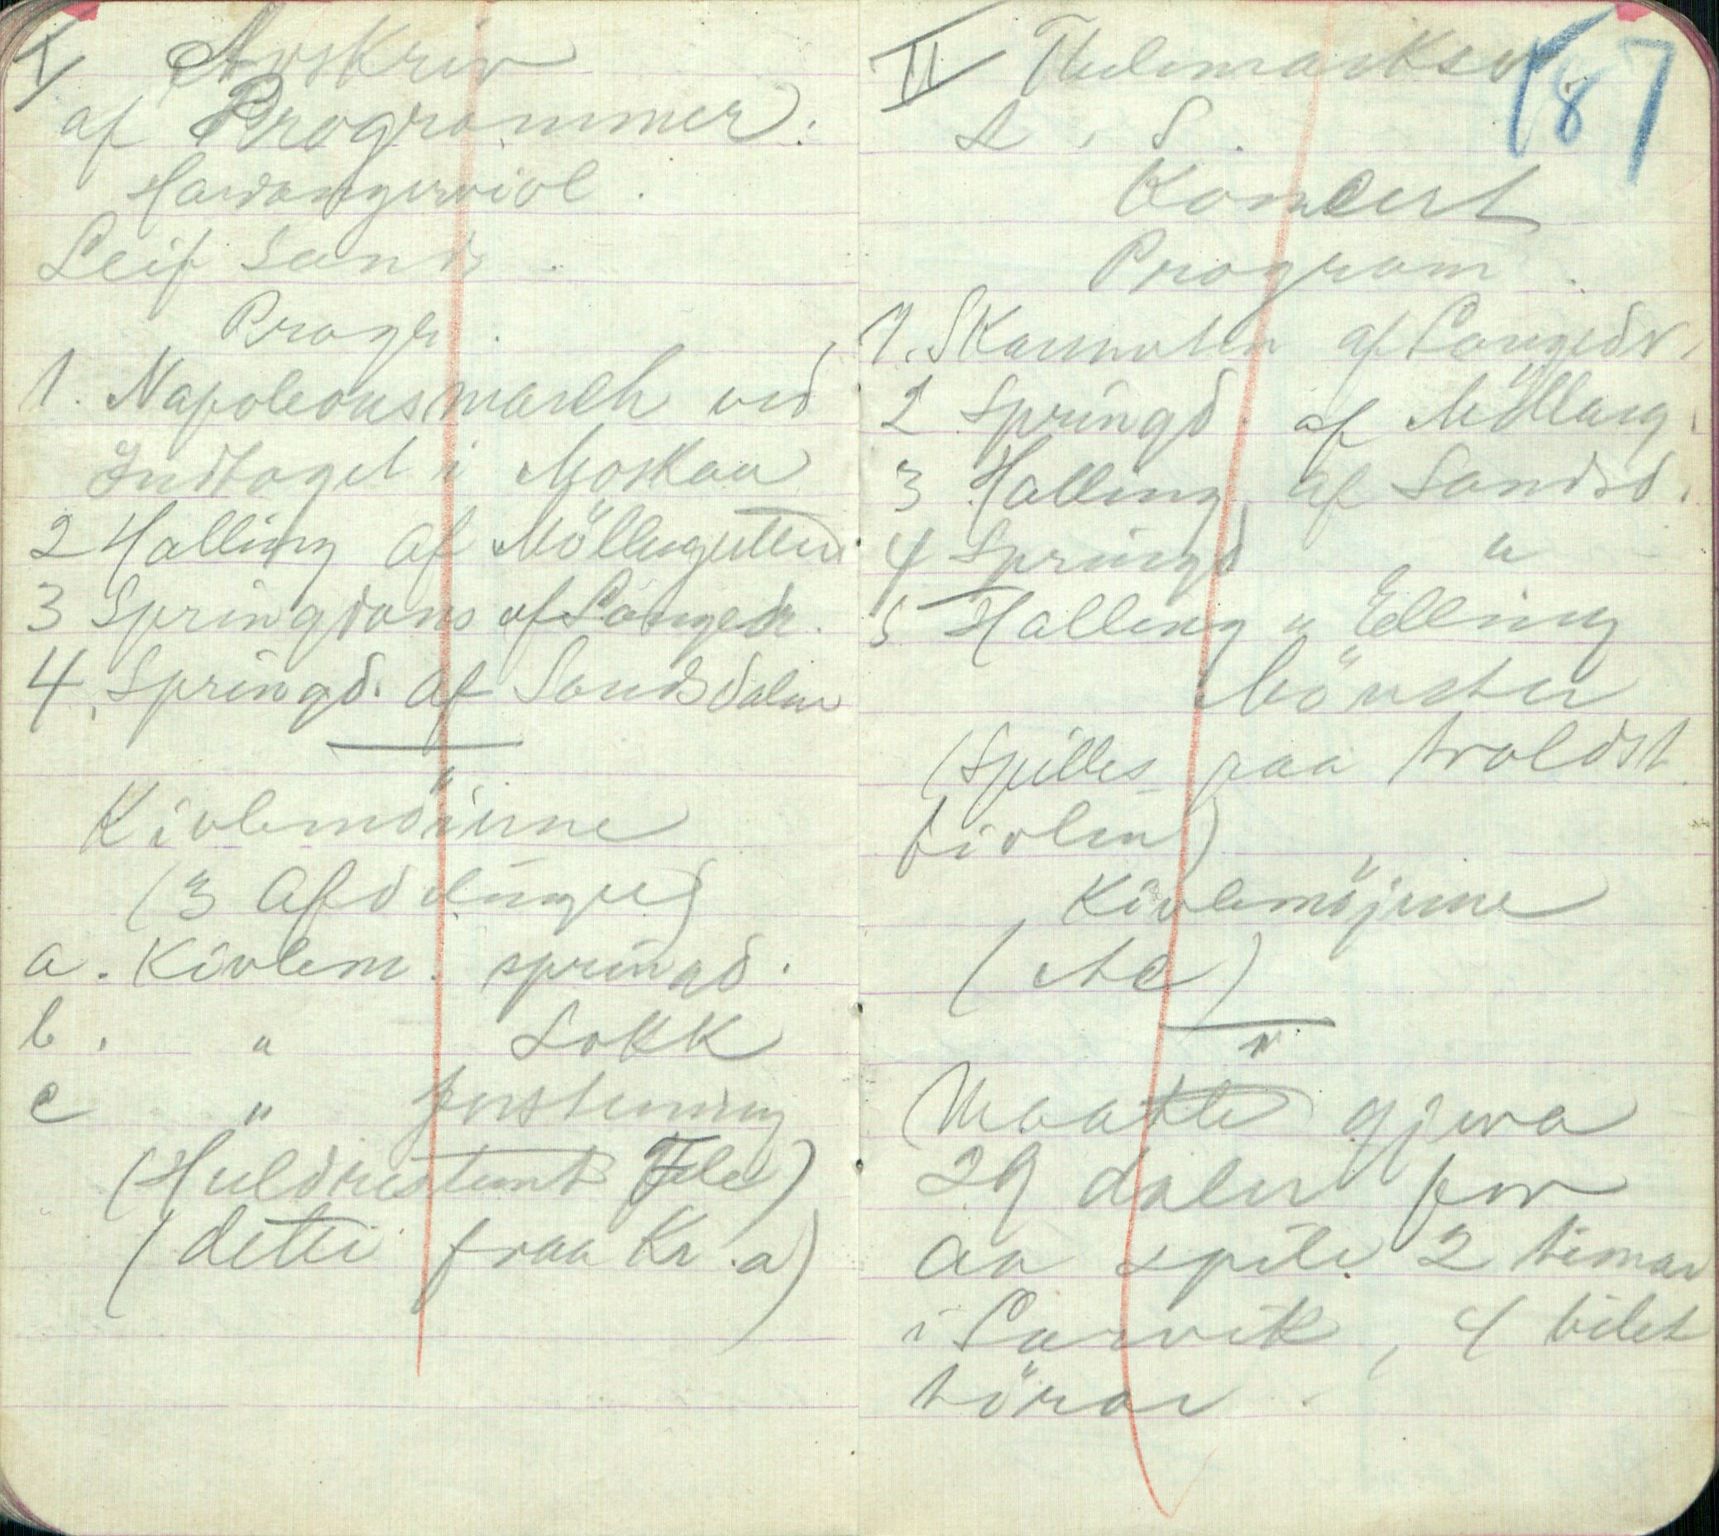 I Avskriv
af Programmer:
Hardangerviol.
Leif Sands.
Progr.
1. Napoleonsmarch ved
Indtoget i Moskau
2 Halling af Möllergutten
3 Springdans af Langedr.
4. Springd. af Sandsdalen
Kivlemöierne
(3 Afdelinger)
a. Kivlem. springd.
b. " Lokk
c " forstening
(Huldrestemt Fele)
(dette fraa Kr.a)
II Thelemarksv.
187
L. S.
Koncert
Program.
1. Skarsnuten af Langedr.
2 Springd. af Möllarg.
3 Halling af Sandsd.
4 Springd "
5 Halling " Elling
(Spilles paa troldst.
fiolin)
Kivlemöjerne
(etc)
Maatte gjeva
29 daler for
aa spile 2 timar
i Larvik, 4 bilet
törar.